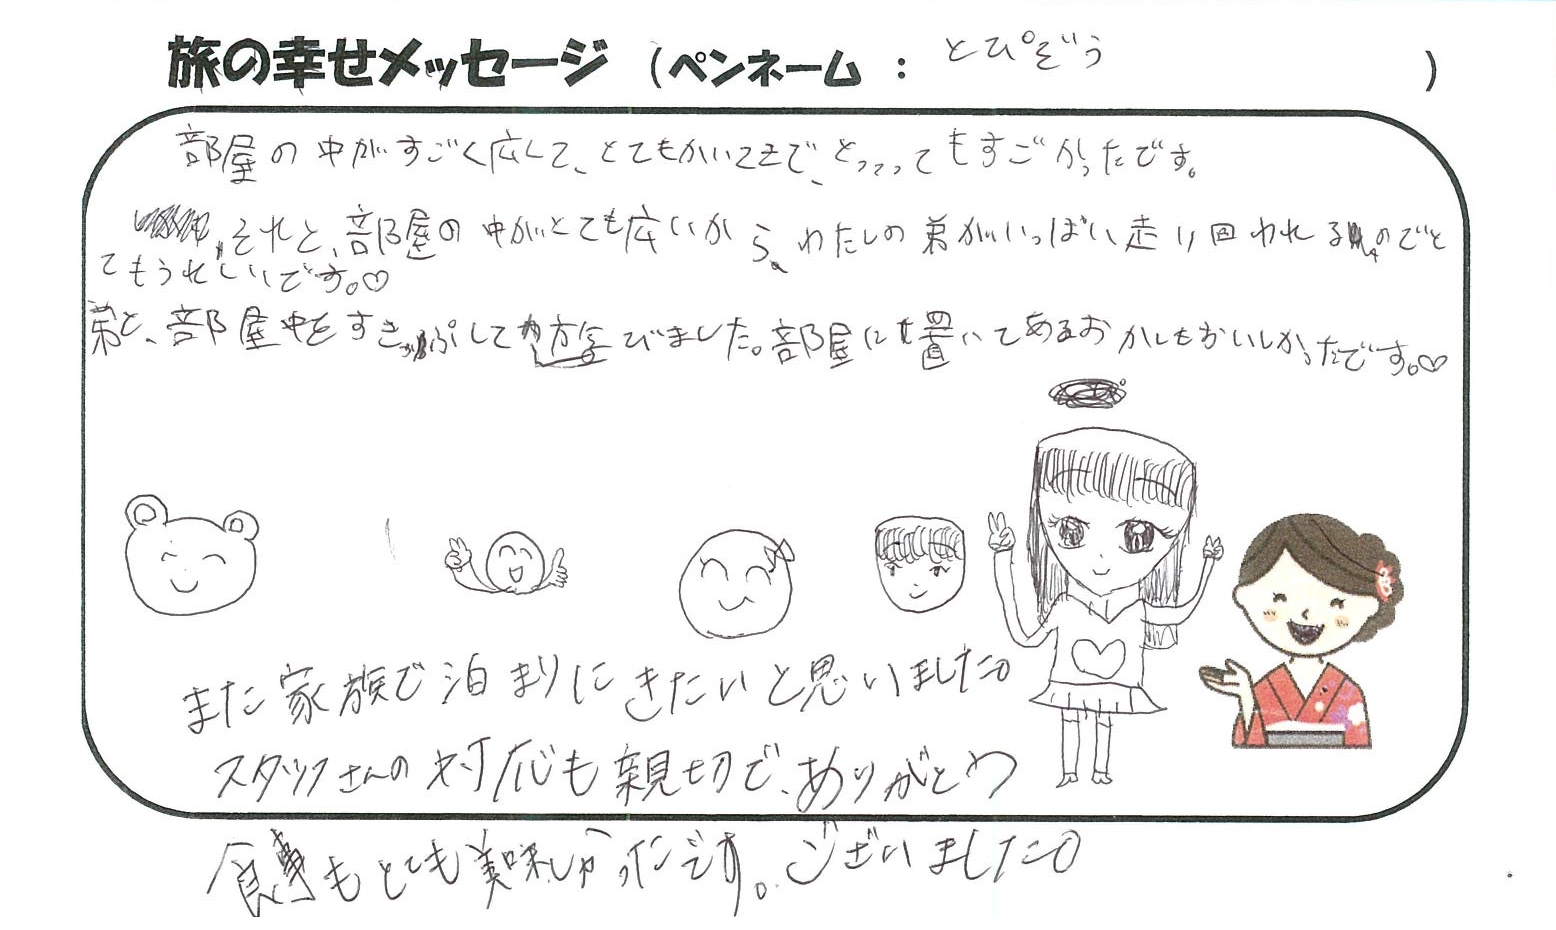 旅の幸せメッセージ (ペンネーム : とぴぞう )
部屋の中がすごく広くて、とてもかいてきで、とっってもすごかったです。
それと、部屋の中がとても広いから、わたしの弟がいっぱい走り回われるのでと
てもうれしいです。♡
弟と、部屋中をすきっぷして遊びました。部屋に置いてあるおかしもおいしかったです。♡
また家族で泊まりにきたいと思いました。
スタッフさんの対応も親切で、ありがとう
食事もとても美味しかったです。ございました。